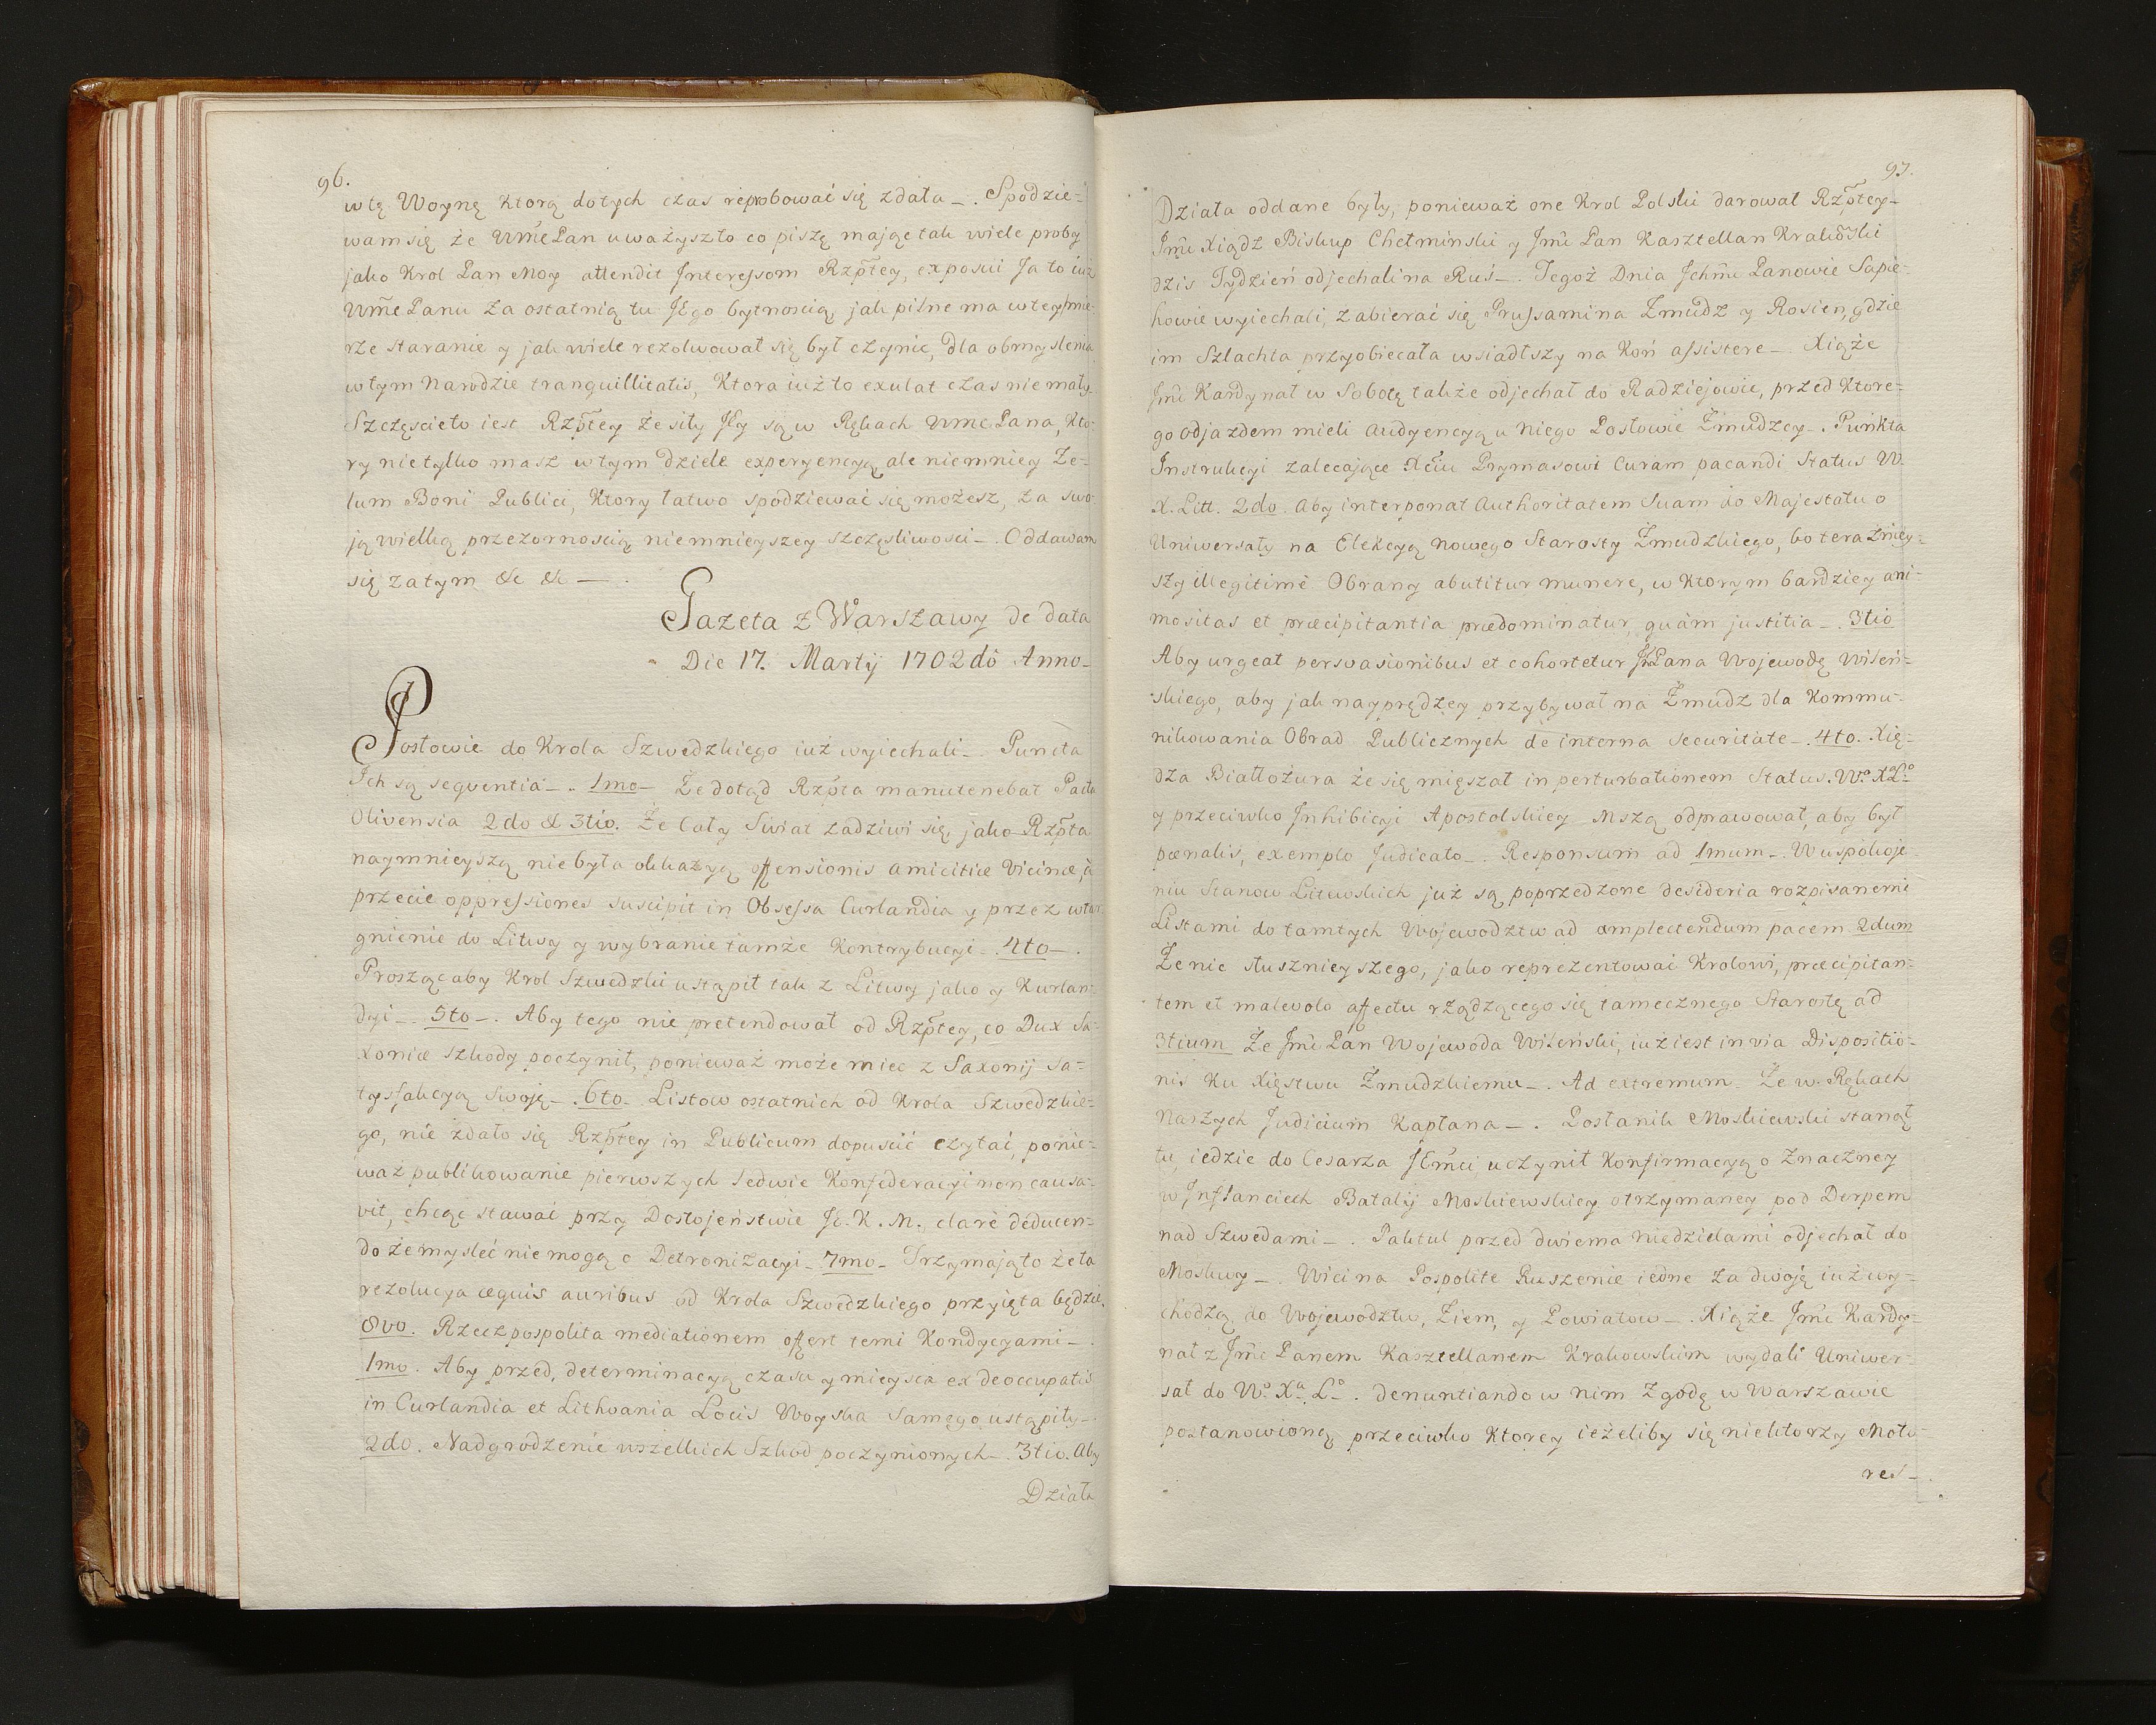 96.
wtę Woynę ktorą dotych czas reprobować się zdała _. Spodzie=
wam się że Wmę Pan uważysz to co piszę mając tak wiele proby
jako Krol Pan Moy attendit Interessom Rzptey, exposui Ja to iuż
Wmę Panu za ostatnią tu JEgo bytnoscią, jak pilne ma wtey mie-
rze staranie y jak wiele rezolwował się był czynic, dla obmyslenia
wtym Narodzie tranquillitatis, Ktora iuż to exulat czas niemały.
Szczęscie to iest Rzptey że siły JEy są w Rękach Wmę Pana, kto-
ry nietylko masz wtym dziele experyencyą ale niemniey Ze=
lum Boni Publici, Ktory łatwo spodziewać się możesz, za swo-
ją wielką przezornoscią niemnieyszey szczęsliwosci _. Oddawam
się zatym &c &c _ .
Gazeta z Warszawy de data
Die 17. Martij 1702do Anno _
Posłowie do Krola Szwedzkiego iuż wyiechali _. Puncta
Ich są seqventia _. 1mo _ Że dotąd Rzpta manutenebat Pacta
Olivensia 2do & 3tio. Że cały Swiat zadziwi się, jako Rzpta
naymnieyszą nie była okkazyą offensionis amicitiæ vicinæ, à
przecie oppressiones suscipit in Obsessa Curlandia y przez wtar-
gnienie do Litwy y wybranie tamże Kontrybucyi _. 4to _.
Prosząc aby Krol Szwedzki ustąpił tak z Litwy jako y Kurlan=
dyi _. 5to _. Aby tego nie pretendował od Rzptey, co Dux Sa=
xoniæ szkody poczynił, ponieważ może miec z Saxonij sa=
tysfakcyą swoję _. 6to _ Listow ostatnich od Krola Szwedzkie=
go, nie zdało się Rzptey in Publicum dopuscić czytać, ponie=
waż publikowanie pierwszych ledwie Konfederacyi non causa=
vit, chcąc stawać przy Dostojeństwie Je. K. M., clarè deducen=
do że mysleć niemogą o Detronizacyi _ 7mo _ Trzymają to że ta
rezolucya æquis auribus od Krola Szwedzkiego przyięta będzie.
8vo. Rzeczpospolita mediationem offert temi Kondycyami _.
1mo. Aby przed, determinacyą czasu y mieysca ex deoccupatis
in Curlandia et Lithvania Locis Woyska samego ustąpiły _.
2do. Nadgrodzenie wszelkich Szkod poczynionych _. 3tio. Aby
Działa
97.
Działa oddane były, ponieważ one Krol Polski darował Rzptey _
Jmć Xiądz Biskup Chełminski y Jmć Pan Kasztellan Krakowski
dzis Tydzień odjechali na Ruś _. Tegoż Dnia Ichmć Panowie Sapie=
howie wyiechali, zabierać się Prussami na Zmudz y Rosien, gdzie
im Szlachta przyobiecała wsiadłszy na Koń assistere _. Xiąże
Jmć Kardynał w Sobotę także odjechał do Radziejowic, przed Ktore=
go odjazdem mieli audyencyą u Niego Posłowie Żmudzcy _. Punkta
Instrukcyi zalecające Xciu Prymasowi Curam pacandi Status W.
X. Litt. 2do. Aby interponat Authoritatem Suam do Majestatu o
Uniwersały na Elekcyą nowego Starosty Żmudzkiego, bo teraznieÿ=
szy illegitimè Obrany abutitur munere, w Ktorym bardziey ani-
mositas et præcipitantia prædominatur, quàm justitia _. 3tio
Aby urgeat persvasionibus et cohortetur Jm Pana Wojewodę Wileń=
skiego, aby jak nayprędzey przybywał na Żmudz dla Kommu-
nikowania Obrad Publicznych de interna securitate _. 4to. Xię=
dza Białłożura że się mięszał in perturbationem Status. Wo. Xa Lo
y przeciwko Inhibicyi Apostolskiey Mszą odprawował, aby był
pœnalis, exemplo judicato _. Responsum ad 1mum _. W uspokoje
niu Stanow Litewskich już są poprzedzone desideria rozpisanemi
Listami do tamtych Wojewodztw ad amplectendum pacem 2dum
Że nic słusznieyszego, jako reprezentować Krolowi, præcipitan=
tem et malevolo affectu rządzącego się tamecznego Starostę ad
3tium Że Jmć Pan Wojewoda Wileński, iuz iest in via Dispositio=
nis Ku Xięstwu Żmudzkiemu _. Ad extremum. Że w Rękach
Naszych Judicium Kapłana _. Posłanik Moskiewski stanął
tu, iedzie do Cesarza JEmci uczynił Konfirmacyą o Znaczney
w Inflanciech Batalij Moskiewskiey otrzymaney pod Derpem
nad Szwedami _. Paktul przed dwiema niedzielami odjechał do
Moskwy _. Wici na Pospolite Ruszenie iedne za dwoję iuż wy=
chodzą do Wojewodztw, Ziem, y Powiatow _. Xiąże Jmć Kardy=
nał z Jmć Panem Kasztellanem Krakowskim wydali Uniwer=
sał do Wo. Xa. Lo. denuntiando w nim Zgodę w Warszawie
postanowioną przeciwko Ktorey ieżeliby się niektorzy Moto-
res _.